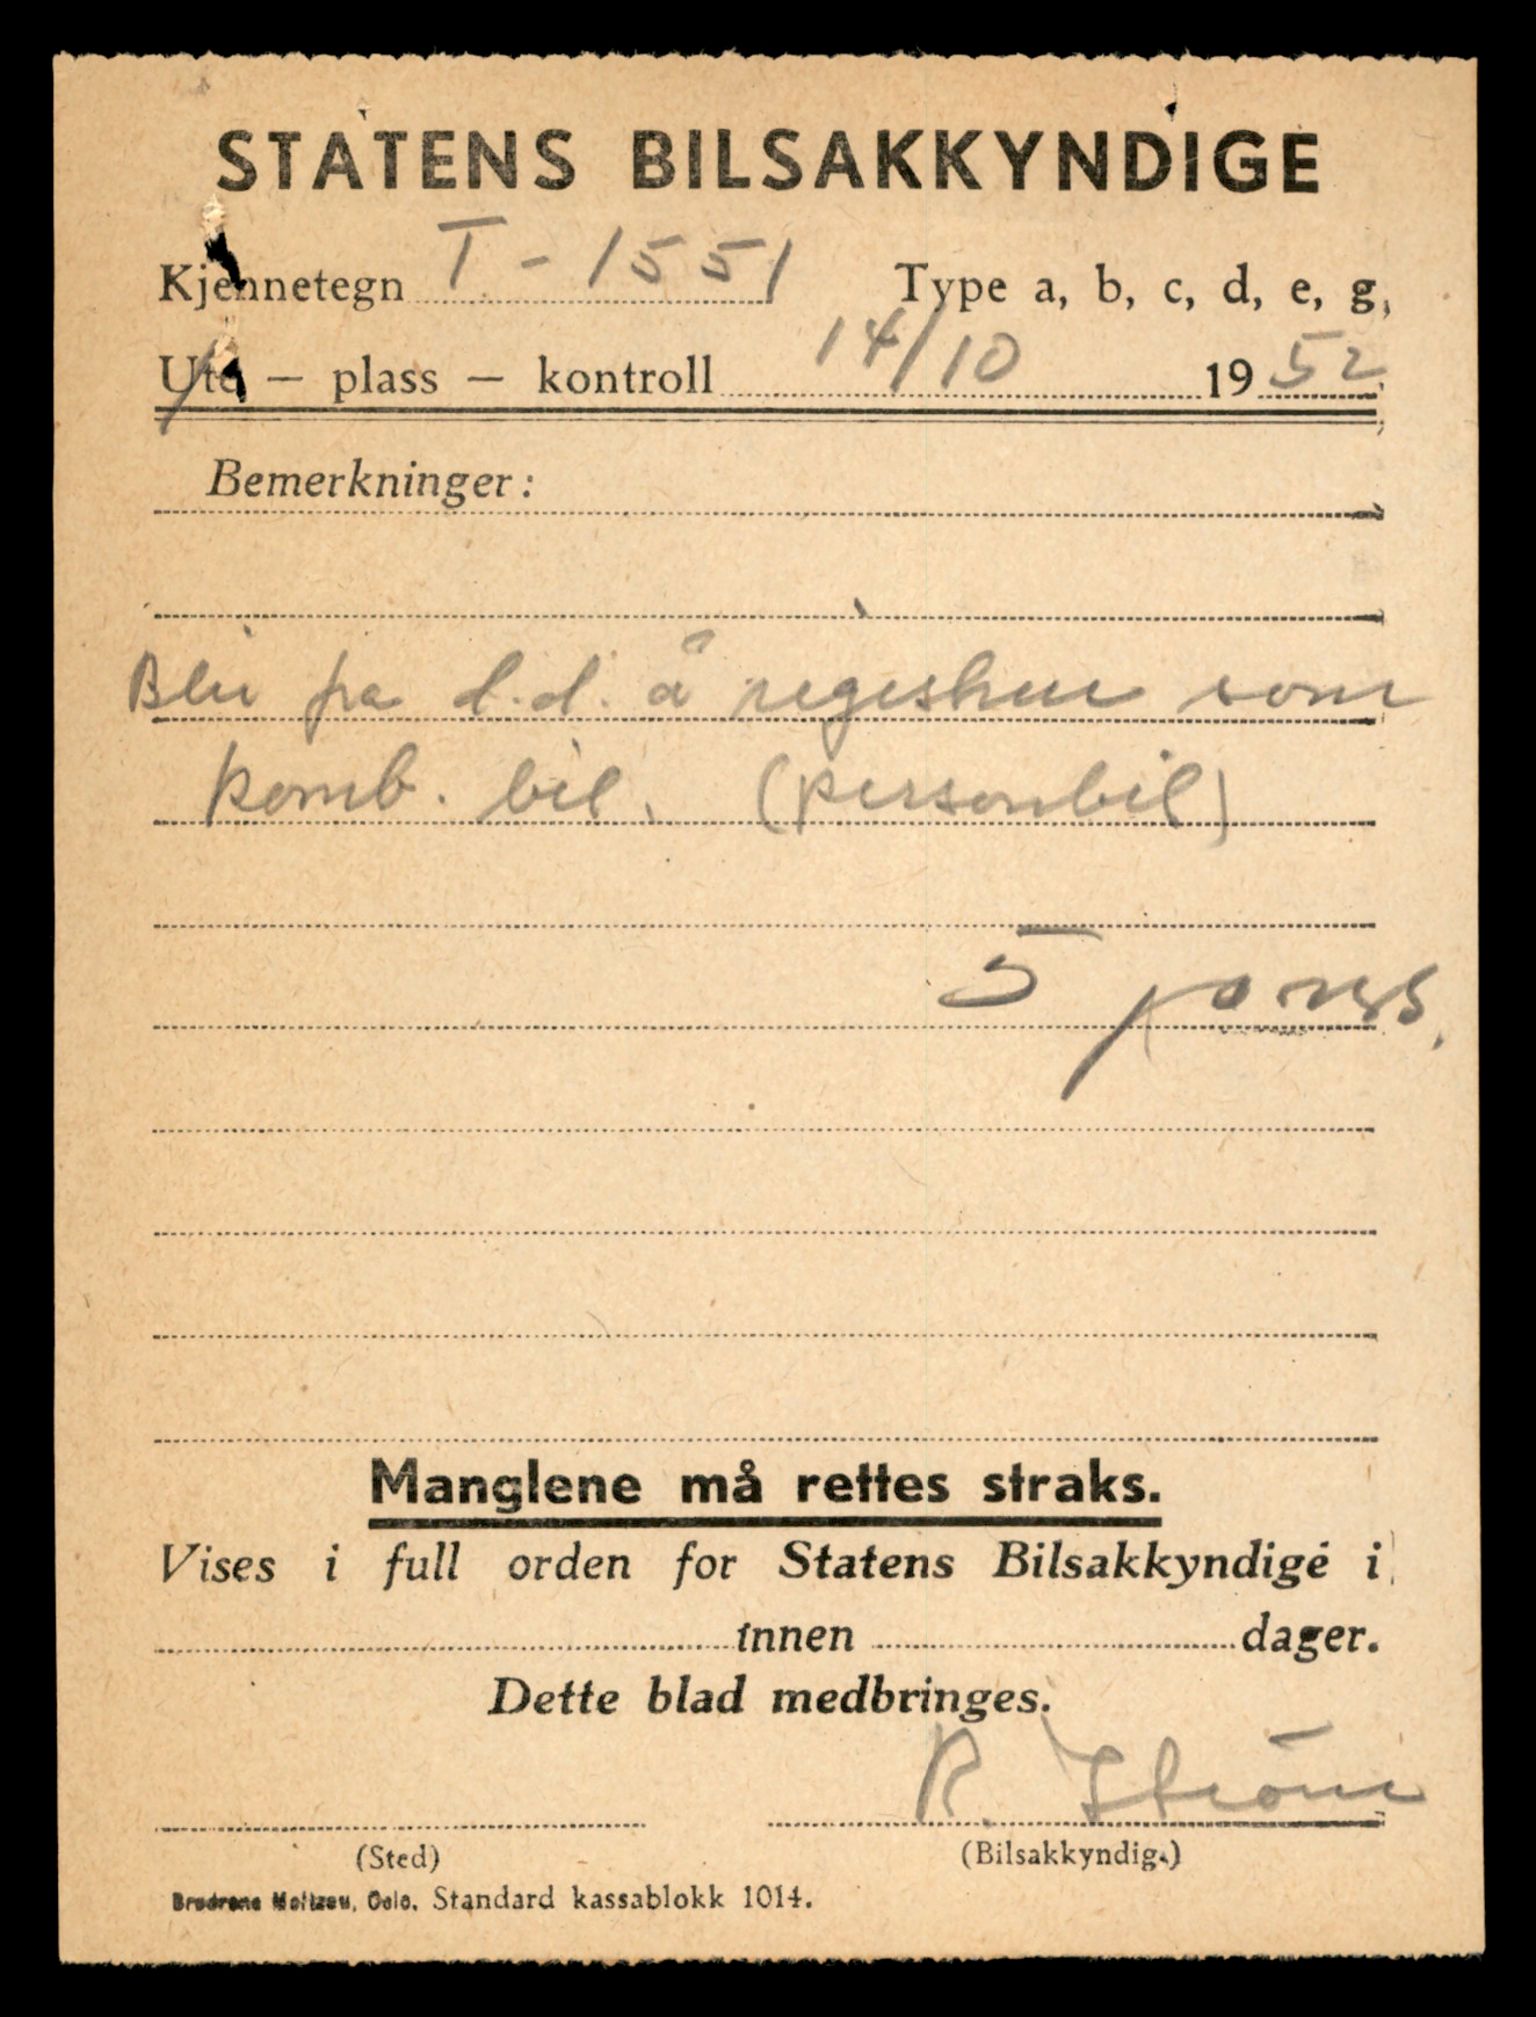 STATENS BILSAKKYNDIGE
Kjennetegn T-1551 Type a, b, c, d, e, g,
Ute — plass — kontroll 14/10 1952
Bemerkninger:
Blir fra d.d. å registrere som
komb. bil. (personbil)
5 pass.
Manglene må rettes straks.
Vises i full orden for Statens Bilsakkyndige i
innen dager.
Dette blad medbringes.
R. Strøm
(Sted) (Bilsakkyndig.)
Brødrene Moltzau, Oslo. Standard kassablokk 1014.